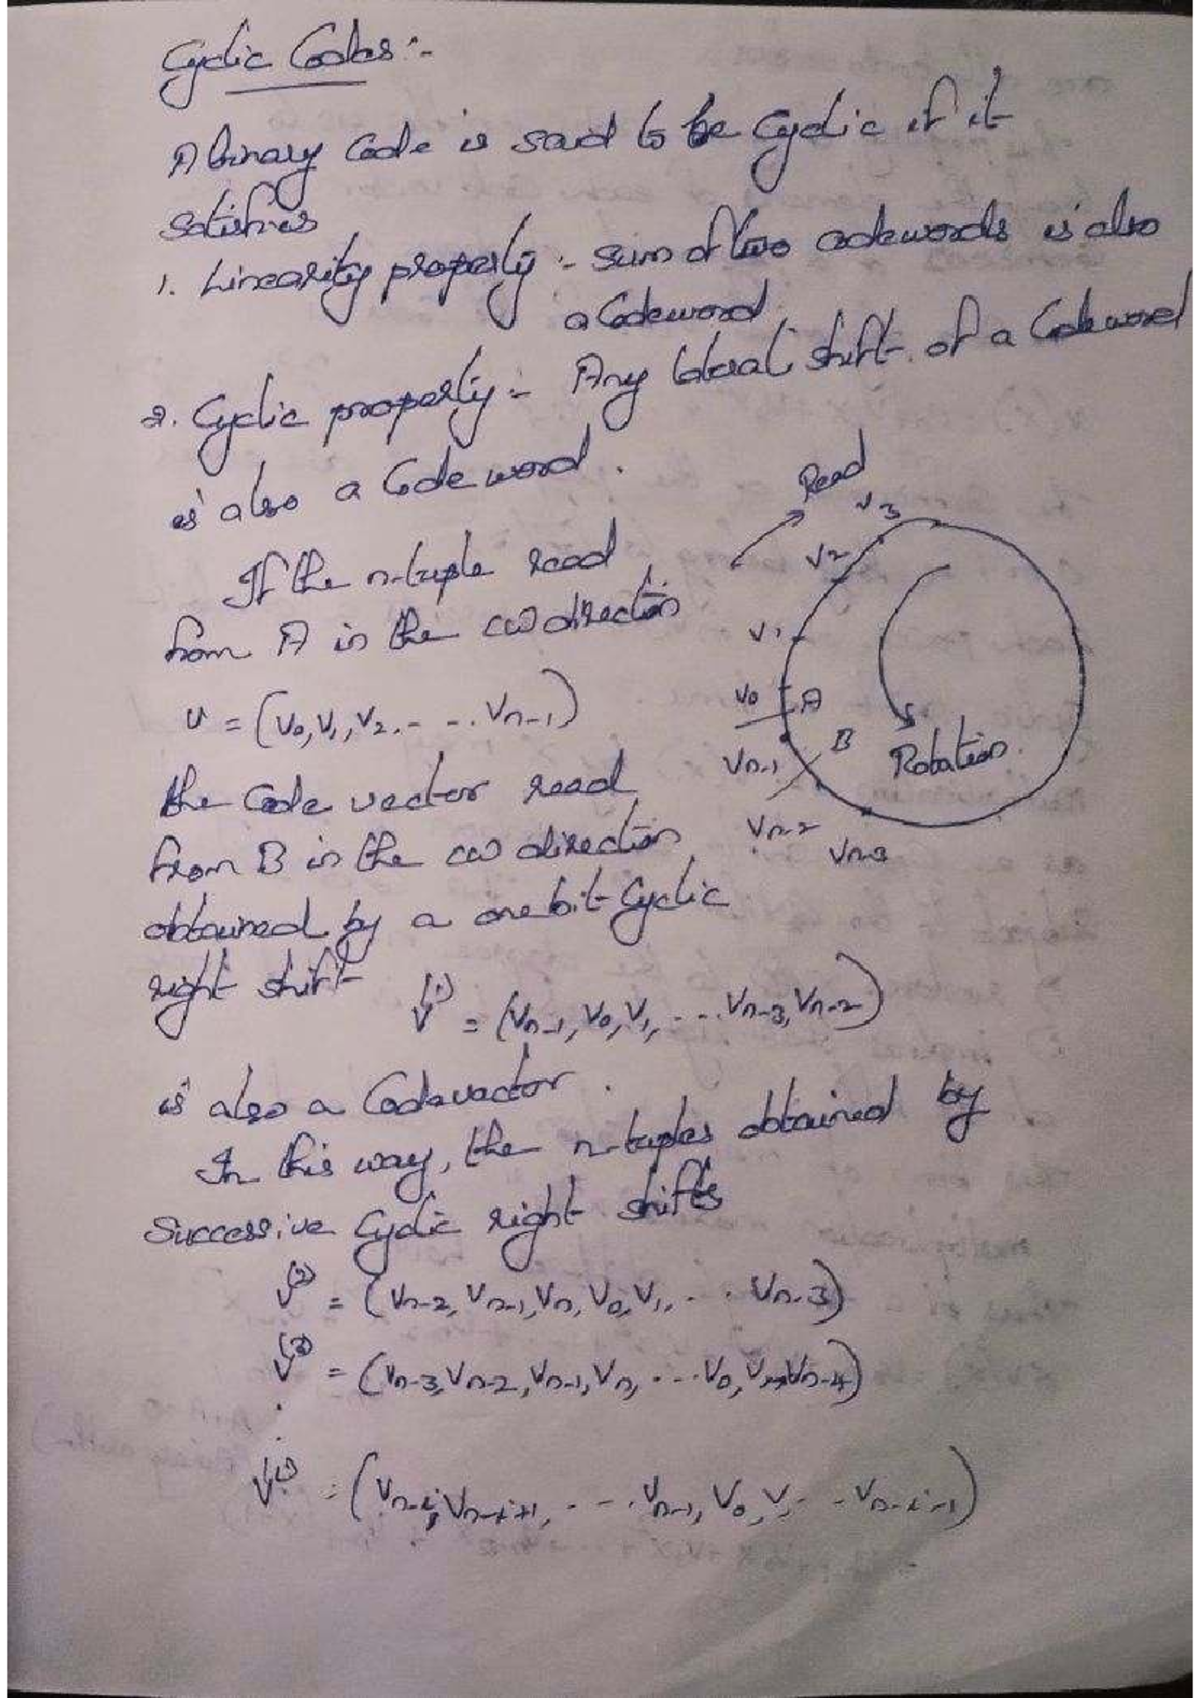 Cyclic Codes :-
A binary Code is said to be Cyclic if it
satisfies
1. Linearity property :- sum of two codewords is also
a Codeword
2. Cyclic property :- Any lateral shift of a Codeword
is also a Code word.
Read
If the n-tuple read
from A in the cw direction
v = (v0, v1, v2, - - - vn-1)
the Code vector read
from B in the cw direction
obtained by a one bit Cyclic
right shift
v3
v2
v1
v0 A
vn-1 B
Rotation
vn-2
vn-3
V(1) = (vn-1, v0, v1, - - - vn-3, vn-2)
is also a Codevector.
In this way, the n-tuples obtained by
Successive Cyclic right shifts
V(2) = (vn-2, vn-1, vn, v0, v1, - - vn-3)
= (vn-3, vn-2, vn-1, vn, - - - v0, vn-4)
V(i) = (vn-i, vn-i+1, - - - vn-1, v0, v, - - vn-i-1)